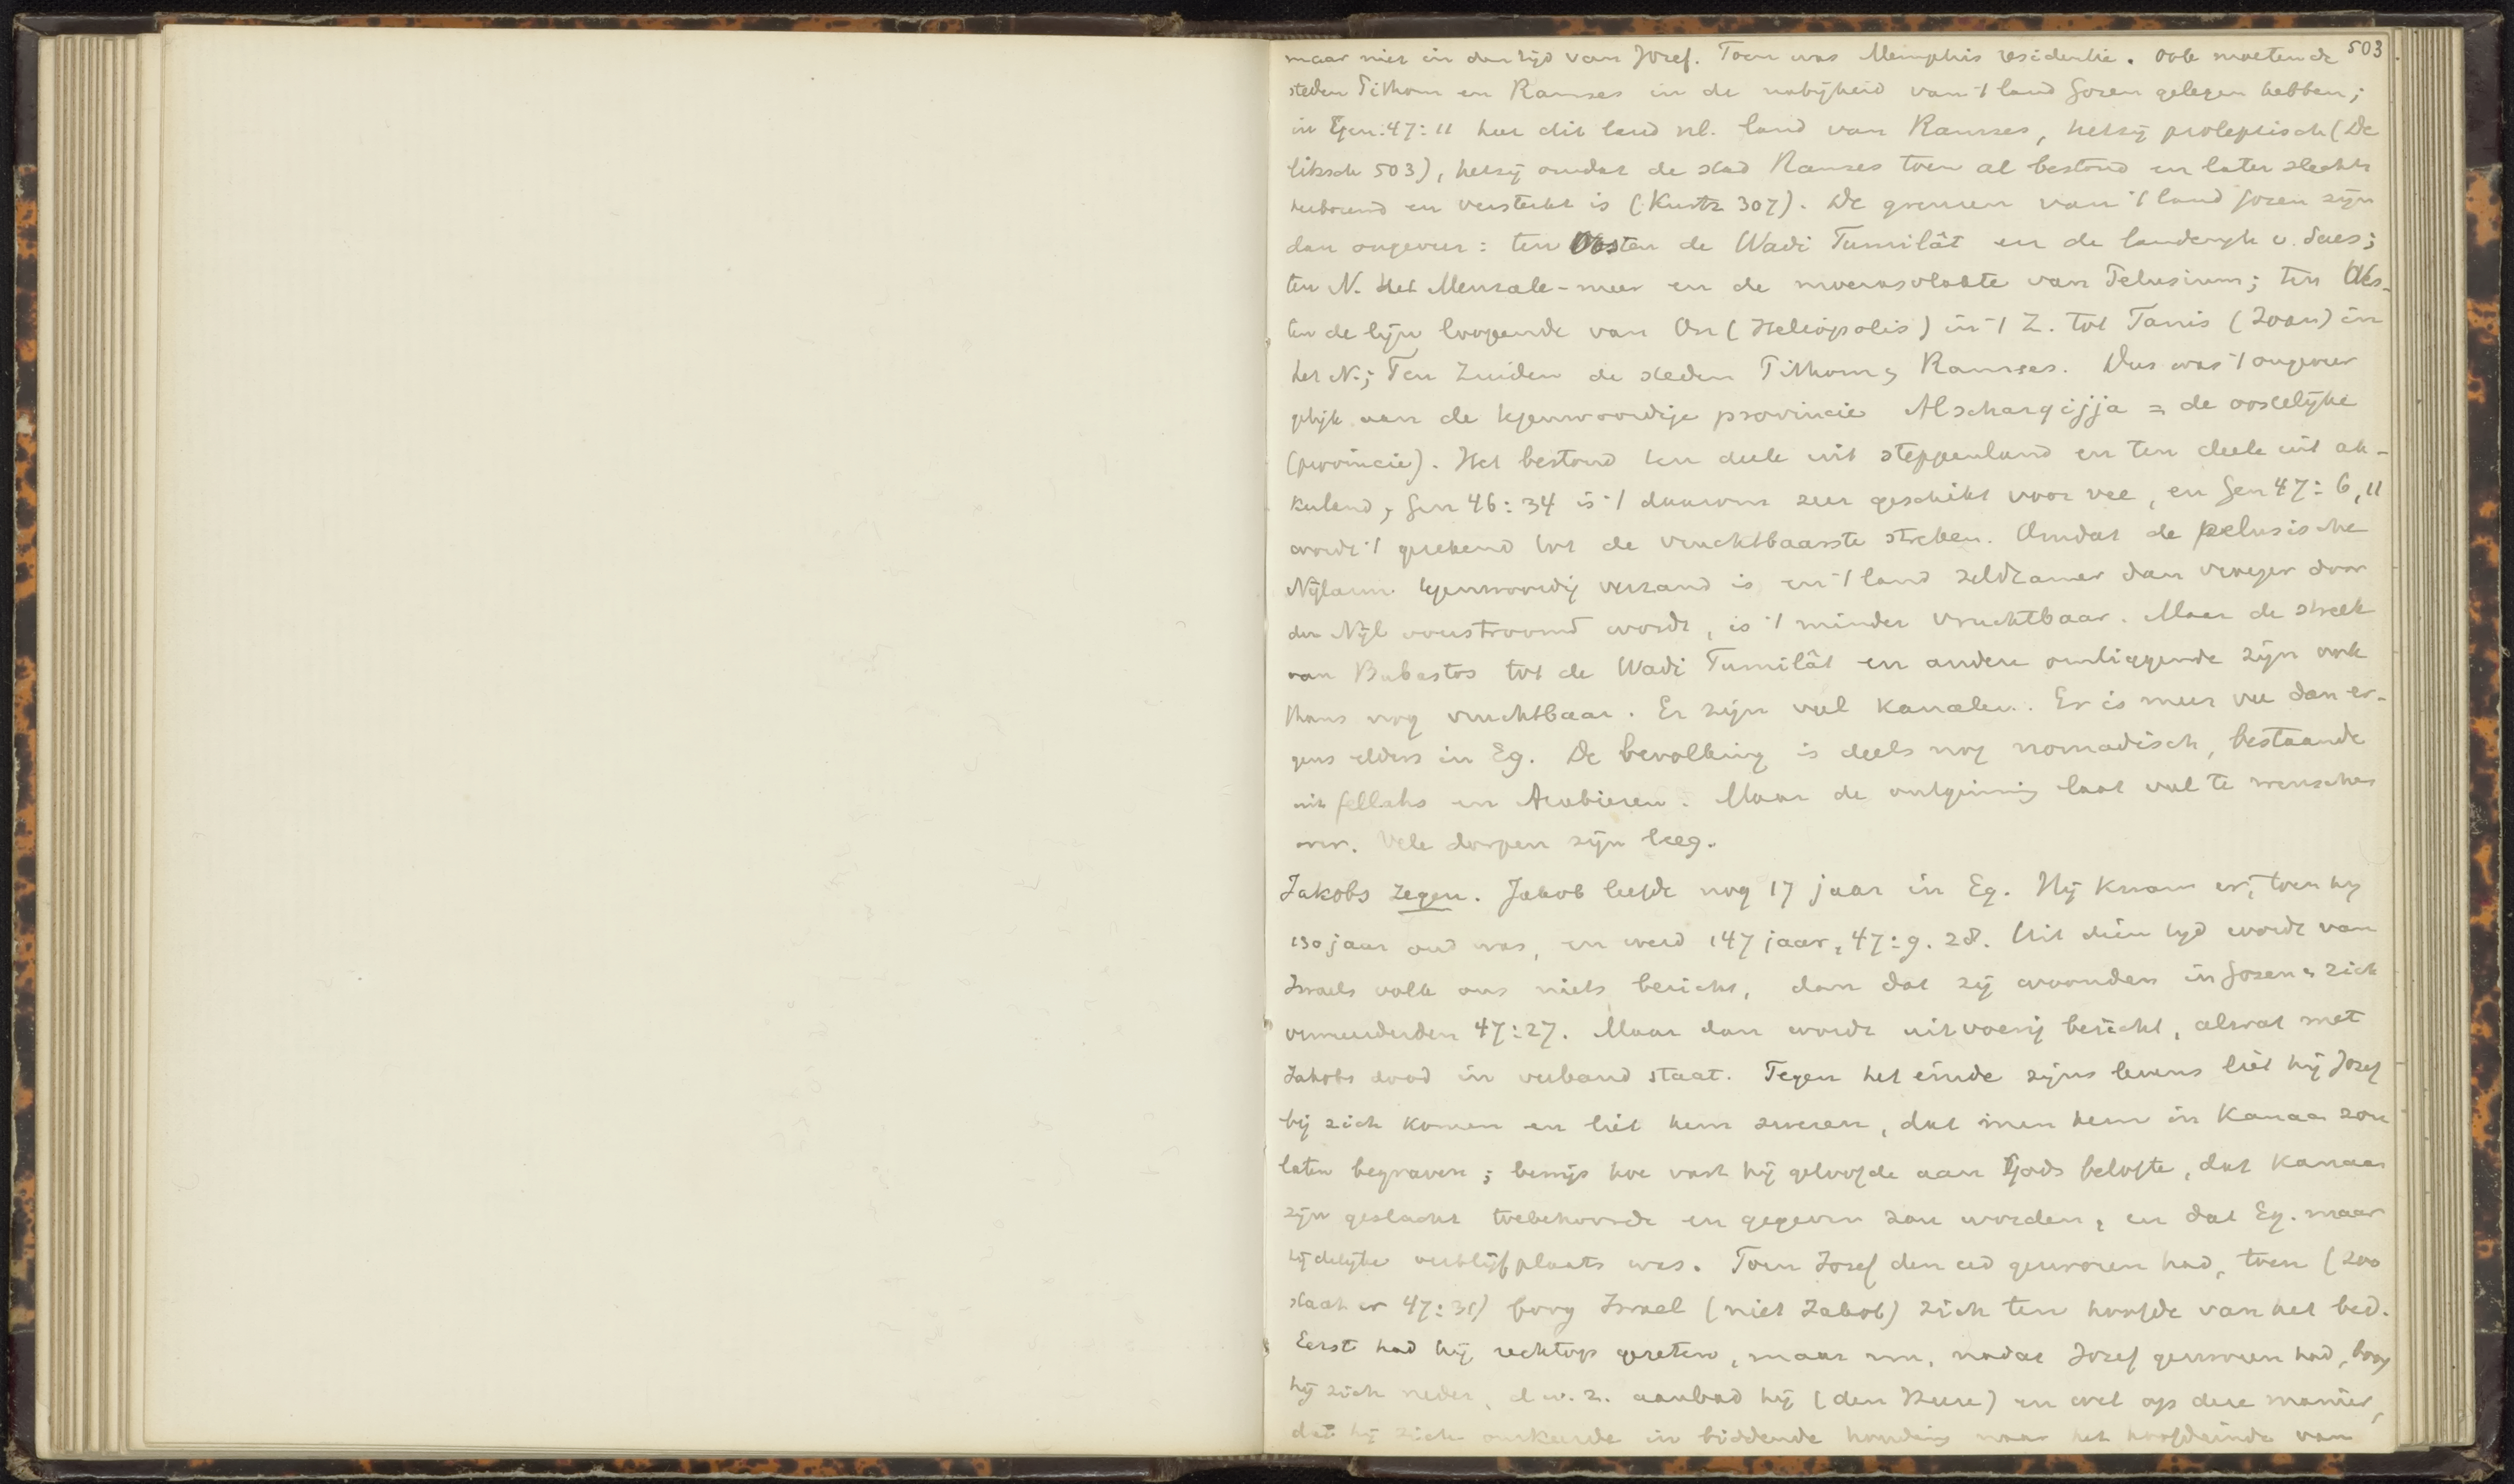 503
maar niet in den tijd van Jozef. Toen was Memphis residentie. Ook moeten de
steden Pithom en Ramses in de nabijheid van 't land Gozen gelegen hebben;
in Gen. 47:11 heet dit land nl. land van Ramses, hetzij proleptisch (De
litzsch 503), hetzij omdat de stad Ramses toen al bestond en later slechts
herbouwd en versterkt is (Kurtz 307). De grenzen van 't land Gozen zijn
dan ongeveer: ten Oosten de Wadi Tumilât en de landengte v. Suez;
ten N. het Menzale-meer en de moerasvlakte van Pelusium; ten Wes-
ten de lijn loopende van On (Heliopolis) in 't Z. tot Tanis (Zoan) in
het N.; Ten Zuiden de steden Pithom & Ramses. Dus was 't ongeveer
gelijk aan de tegenwoordige provincie Alscharqijja = de oostelijke
(provincie). Het bestond ten deele uit steppenland en ten deele uit ak-
kerland; Gen 46:34 is 't daarom zeer geschikt voor vee, en Gen 47:6,11
wordt 't gerekend tot de vruchtbaarste streken. Omdat de pelusische
Nijlarm tegenwoordig verzand is en 't land zeldzamer dan vroeger door
den Nijl overstroomd wordt, is 't minder vruchtbaar. Maar de streek
van Bubastos tot de Wadi Tumilât en andere omliggende zijn ook
thans nog vruchtbaar. Er zijn veel kanalen. Er is meer vee dan er-
gens elders in Eg. De bevolking is deels nog nomadisch, bestaande
uit fellahs en Arabieren. Maar de ontginning laat veel te wenschen
over. Vele dorpen zijn leeg.
Jakobs zegen. Jakob leefde nog 17 jaar in Eg. Hij kwam er, toen hij
130 jaar oud was, en werd 147 jaar, 47:9. 28. Uit dien tijd wordt van
Israels volk ons niets bericht, dan dat zij woonden in Gozen & zich
vermeerderden 47:27. Maar dan wordt uitvoerig bericht, alwat met
Jakobs dood in verband staat. Tegen het einde zijns levens liet hij Jozef
bij zich komen en liet hem zweren, dat men hem in Kanaan zou
laten begraven; bewijs hoe vast hij geloofde aan Gods belofte, dat Kanaan
zijn geslacht toebehoorde en gegeven zou worden, en dat Eg. maar
tijdelijke verblijfplaats was. Toen Jozef den eed gezworen had, toen (zoo
staat er 47:31) boog Israel (niet Jakob) zich ten hoofde van het bed.
Eerst had hij rechtop gezeten, maar nu, nadat Jozef gezworen had, boog
hij zich neder, d.w.z. aanbad hij (den Heere) en wel op deze manier,
dat hij zich omkeerde in biddende houding naar het hoofdeinde van